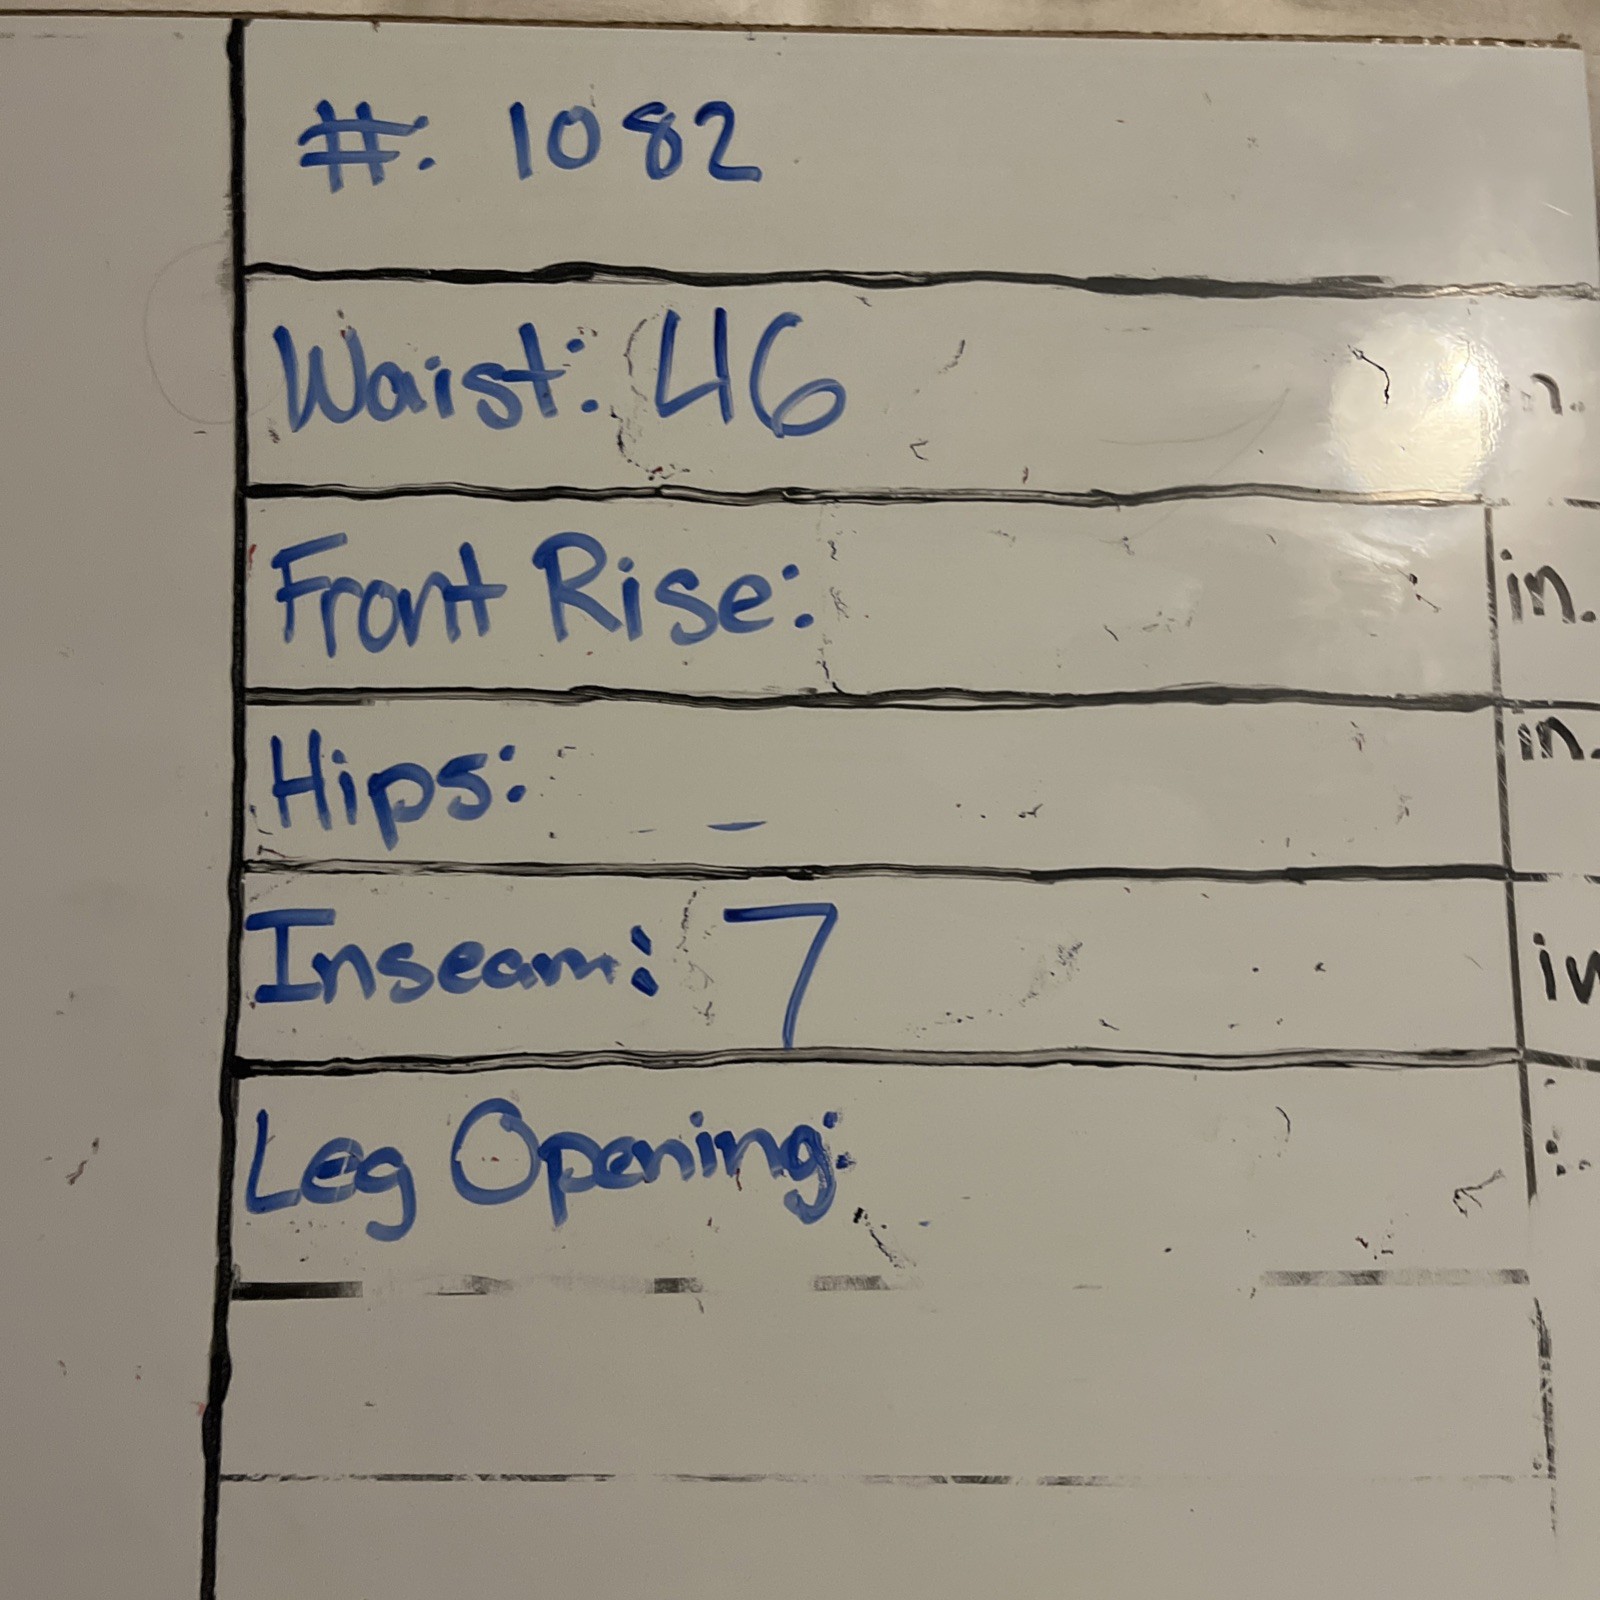 #: 1082
Waist: 46 n.
Front Rise: in.
Hips: in.
Inseam: 7 in
Leg Opening: